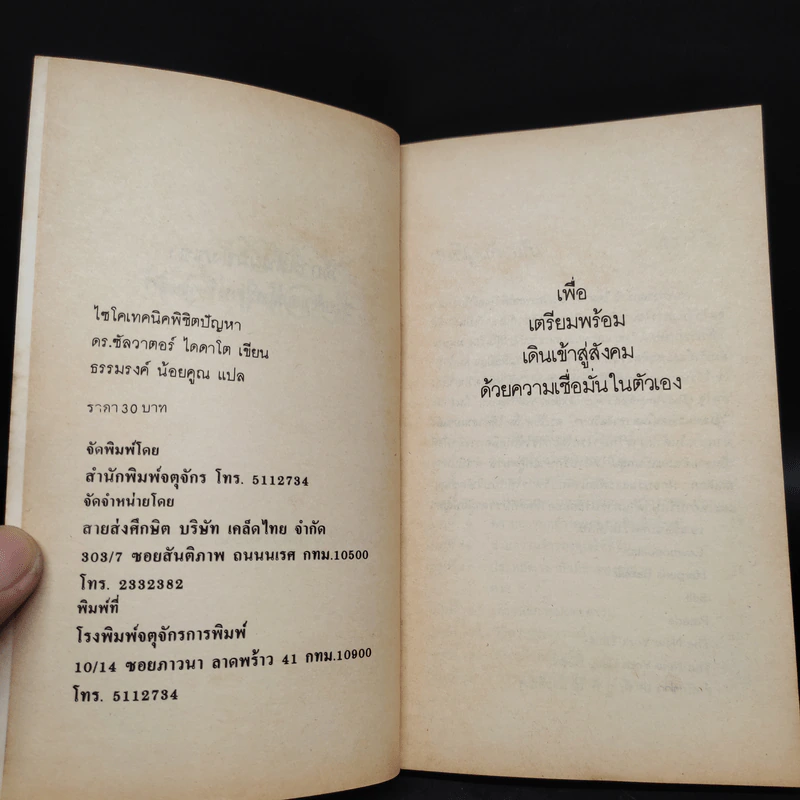 ไซโคเทคนิคพิชิตปัญหา
ดร.ซัลวาตอร์ ไดดาโต เขียน
ธรรมรงค์ น้อยคูณ แปล
ราคา 30 บาท
จัดพิมพ์โดย
สำนักพิมพ์จตุจักร โทร. 5112734
จัดจำหน่ายโดย
สายส่งศึกษิต บริษัท เคล็ดไทย จำกัด
303/7 ซอยสันติภาพ ถนนนเรศ กทม.10500
โทร. 2332382
พิมพ์ที่
โรงพิมพ์จตุจักรการพิมพ์
10/14 ซอยภาวนา ลาดพร้าว 41 กทม.10900
โทร. 5112734
เพื่อ
เตรียมพร้อม
เดินเข้าสู่สังคม
ด้วยความเชื่อมั่นในตัวเอง